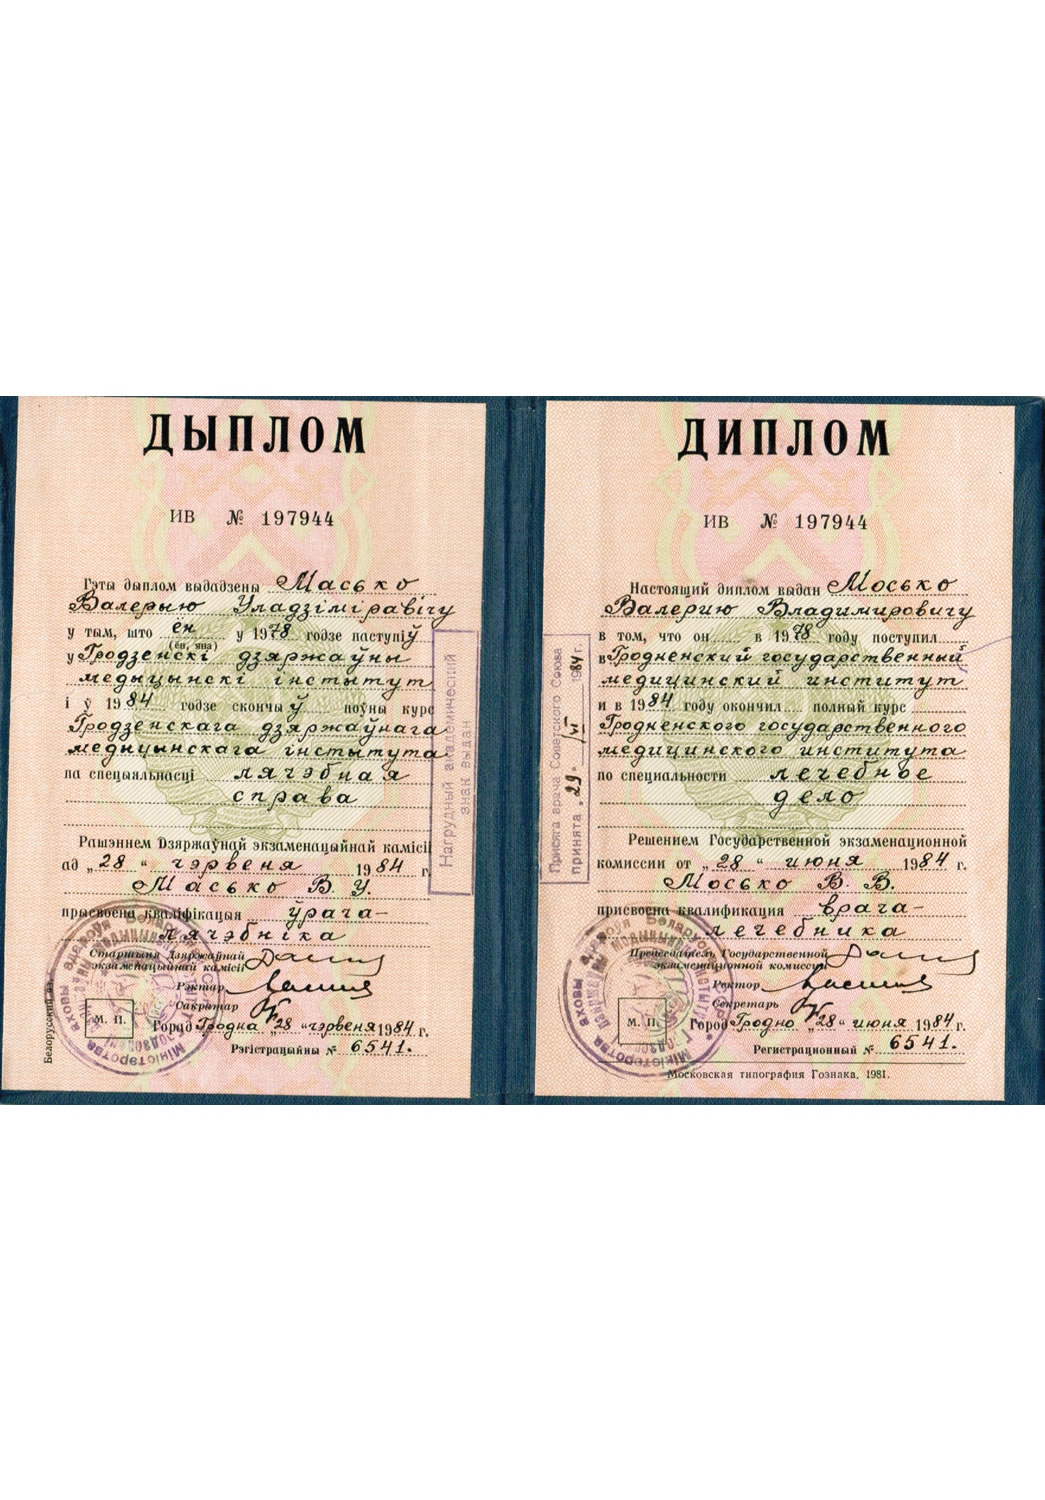 ДЫПЛОМ
ИВ № 197944
Гэты дыплом выдадзены Масько
Валерыю Уладзіміравічу
у тым, што ён у 1978 годзе паступіў
(ён, яна)
у Гродзенскі дзяржаўны
медыцынскі інстытут
і ў 1984 годзе скончыў поўны курс
Гродзенскага дзяржаўнага
медыцынскага інстытута
па спецыяльнасці лячэбная
справа
Рашэннем Дзяржаўнай экзаменацыйнай камісіі
ад „28“ чэрвеня 1984 г.
Масько В. У.
прысвоена кваліфікацыя ўрача-
лячэбніка
Старшыня Дзяржаўнай
экзаменацыйнай камісіі
Рэктар
Сакратар
М. П.
Горад Гродна „28“ чэрвеня 1984 г.
Рэгістрацыйны № 6541.
Белорусский яз.
Нагрудный академический
знак выдан
ДИПЛОМ
ИВ № 197944
Настоящий диплом выдан Мосько
Валерию Владимировичу
в том, что он в 1978 году поступил
в Гродненский государственный
медицинский институт
и в 1984 году окончил полный курс
Гродненского государственного
медицинского института
по специальности лечебное
дело
Решением Государственной экзаменационной
комиссии от „28“ июня 1984 г.
Мосько В. В.
присвоена квалификация врача-
лечебника
Председатель Государственной
экзаменационной комиссии
Ректор
Секретарь
М. П.
Город Гродно „28“ июня 1984 г.
Регистрационный № 6541.
Московская типография Гознака, 1981.
Присяга врача Советского Союза
принята „29“ VI 1984 г.